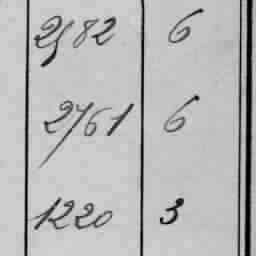 2582 6
2761 6
1220 3